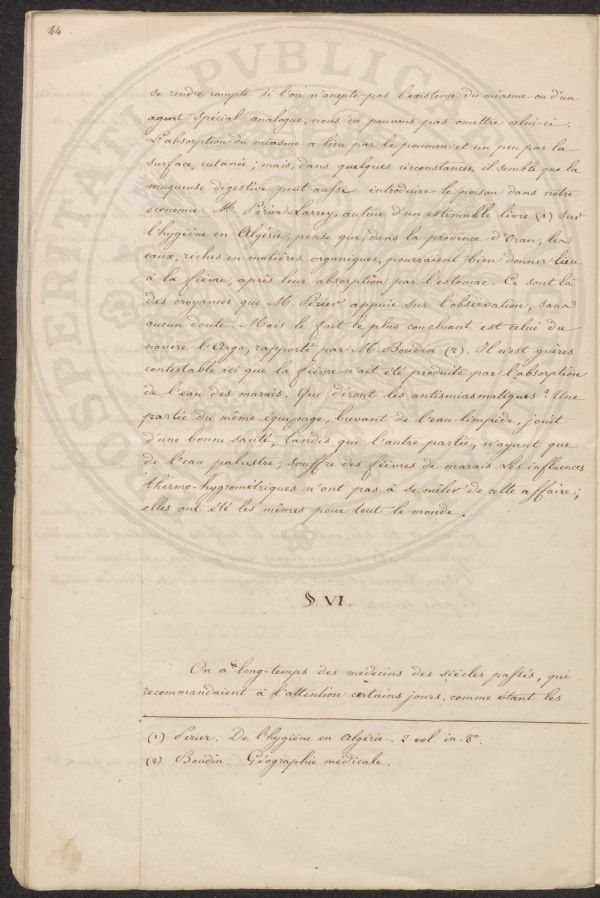 44
se rendre compte si l'on n'accepte pas l'existence du miasme ou d'un
agent spécial analogue, nous ne pouvons pas omettre celui-ci.
L'absorption du miasme a lieu par le poumon et un peu par la
surface cutanée; mais, dans quelques circonstances, il semble que la
muqueuse digestive peut aussi introduire le poison dans notre
economie. M. Périer Larrey, auteur d'un estimable livre (1) sur
l'hygiène en Algérie, pense que, dans la province d'Oran, les
eaux, riches en matières organiques, pourraient bien donner lieu
à la fièvre, après leur absorption par l'estomac. Ce sont là
des croyances que M. Périer appuie sur l'observation, sans
aucun doute. Mais le fait le plus concluant est celui du
navire l'Argo, rapporté par M. Boudin (2). Il n'est guères
contestable ici que la fièvre n'ait été produite par l'absorption
de l'eau des marais. Que diront les antismiasmatiques? Une
partie du même équipage, buvant de l'eau limpide, jouit
d'une bonne santé, tandis que l'autre partie, n'ayant que
de l'eau palustre, souffre des fièvres de marais. Les influences
thermo-hygrométriques n'ont pas à se mêler de cette affaire;
elles ont été les mêmes pour tout le monde.
§ VI.
On a long-temps des médecins des siècles passés, qui
recommandaient à l'attention certains jours, comme étant les
(1) Périer. De l'hygiène en Algérie. 2 vol. in-8°.
(2) Boudin. Géographie médicale.
PROSPERITATI PVBLICA